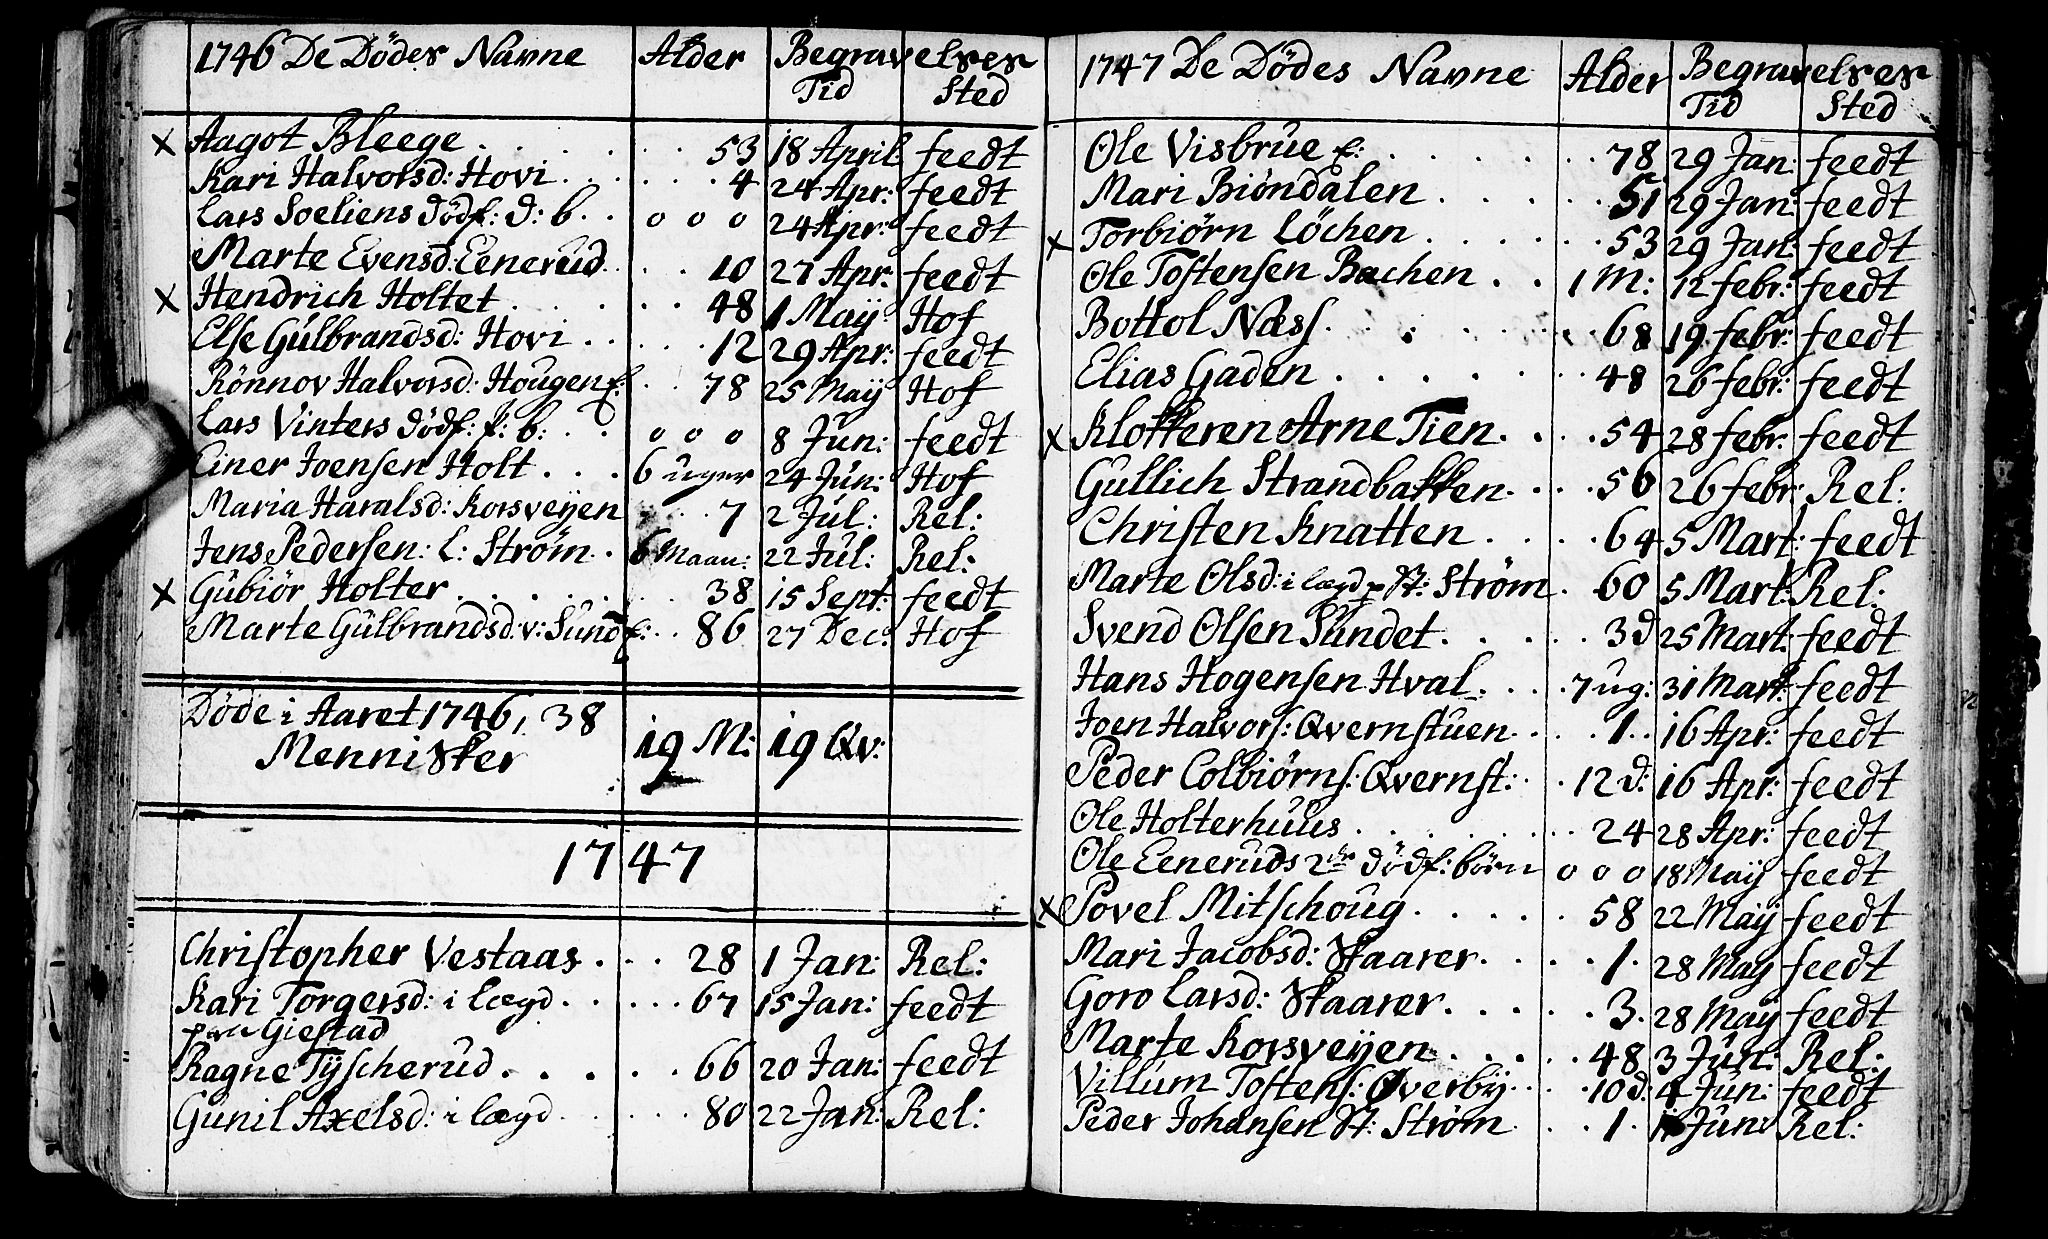 1746 De Dödes Navne Alder Begravelses
Tid Sted
x Aagot Bleege 53 18 April feedt
Kari Halvorsd: Hovi 4 24 Apr: feedt
Lars Soeliens Dödf: d: b. o o o 24 Apr: feedt
Marte Evensd: Eenerud 10 27 Apr: feedt
x Hendrich Holtet 48 1 Maÿ Hof
Else Gulbrandsd: Hovi 12 29 Apr: feedt
Rönnov Halvorsd: Hougen E: 78 25 Maÿ Hof
Lars Vinters dödf: p: b: o o o 8 Jun: feedt
Einer Joensen Holt 6 uger 24 Jun: Hof
Maria Haralsd: Korsveÿen 7 2 Jul: Rel:
Jens Pedersen: l: Strøm 6 Maan: 22 Jul: Rel:
x Gubiör Holter 38 15 Sept: feedt
Marte Gulbrandsd: v: Sund E: 86 27 Dec: Hof
Döde i Aaret 1746, 38
Mennisker 19 M: 19 Qv:
1747
Christopher Vestaas 28 1 Jan: Rel:
Kari Torgersd: i lægd 67 15 Jan: feedt
paa Giestad
Ragne Tÿscherud 66 20 Jan: feedt
Gunil Axelsd: i lægd 80 22 Jan: Rel:
1747 De Dödes Navne Alder Begravelses
Tid Sted
Ole Visbrue E: 78 29 Jan: feedt
Mari Biöndalen 51 29 Jan: feedt
x Torbiörn Löchen 53 29 Jan: feedt
Ole Tostensen Bachen 1 M: 12 febr: feedt
Bottol Næss 68 19 febr: feedt
Elias Gaden 48 26 febr: feedt
x Klokkeren Arne Tien 54 28 febr: feedt
Gullich Strandbakken 56 26 febr: Rel:
Christen Knatten 64 5 Mart: feedt
Marte Olsd: i lægd p St: Strøm 60 5 Mart: Rel:
Svend Olsen Sundet 3 d 25 Mart: feedt
Hans Hogensen Hval 7 ug: 31 Mart: feedt
Joen Halvors: Qvernstuen 1 16 Apr: feedt
Peder Colbiörns: Qvernst: 12 d: 16 Apr: feedt
Ole Holterhuus 24 28 Apr: feedt
Ole Eeneruds 2de dödf: börn o o o 18 Maÿ feedt
x Povel Mitschoug 58 22 Maÿ feedt
Mari Jacobsd: Skaarer 1 28 Maÿ feedt
Goro Larsd: Skaarer 3 28 Maÿ feedt
Marte Korsveÿen 48 3 Jun: Rel:
Villum Tostens: Øverbÿ 10 d: 4 Jun: feedt
Peder Johansen St: Strøm 1 Jun: Rel: